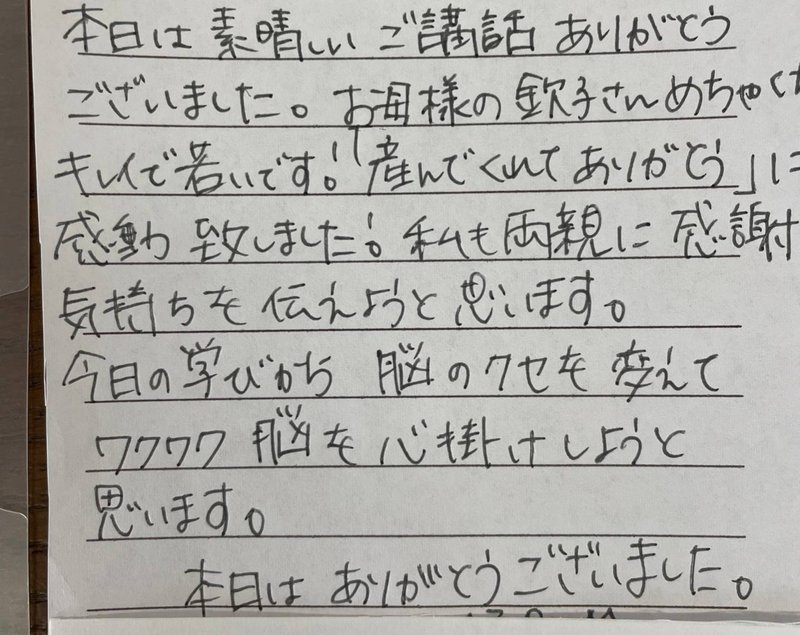 本日は 素晴しい ご講話 ありがとう
ございました。お母様の 欽子さん めちゃくち
キレイで若いです!!「産んでくれて ありがとう」に
感動 致しました! 私も両親に 感謝
気持ちを 伝えようと 思います。
今日の学びから 脳のクセを 変えて
ワクワク 脳を 心掛けしようと
思います。
本日は ありがとうございました。